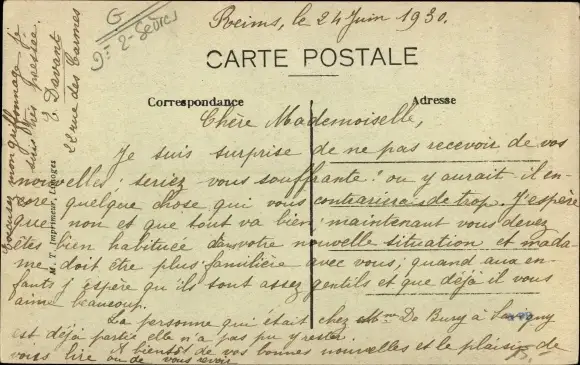 Reims, le 24 Juin 1930.
G
Dt 2-Sèvres
CARTE POSTALE
Correspondance
Adresse
Chère Mademoiselle,
Je suis surprise de ne pas recevoir de vos
nouvelles; seriez vous souffrante? ou y aurait il en-
core quelque chose qui vous de trop. J'espère
que non et que tout va bien; maintenant vous devez
êtes bien habituée dans votre nouvelle situation et mada
me doit être plus familière avec vous; quand aux en-
fants j'espère qu'ils sont assez gentils et que déjà il vous
aime beaucoup.
La personne qui était chez Mme De Bury à
est déjà partie elle n'a pas pu y rester.
A bientôt de vos bonnes nouvelles et le plaisir de
vous lire ou de vous revoir
Excusez mon griffonnage je
suis très pressée.
Davant
22 rue des Carmes
M. T. Imprimeur, Limoges